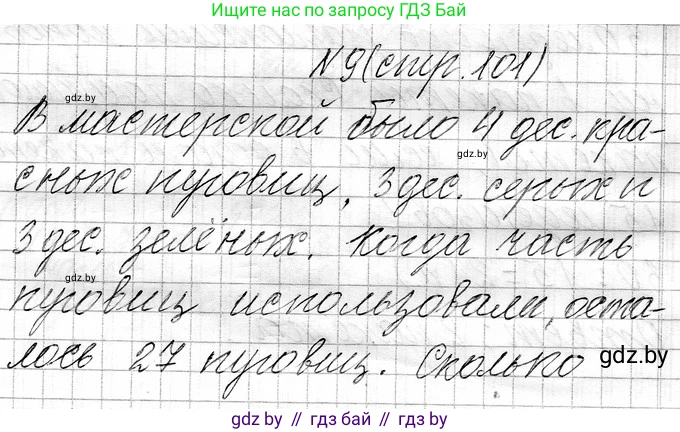 Ищите нас по запросу ГДЗ Бай
N 9 (стр. 101)
gdz.by
В мастерской было 4 дес. кра-
gdz.by
сных пуговиц, 3 дес. серых и
3 дес. зелёных. Когда часть
gdz.by
пуговиц использовали, оста-
лось 27 пуговиц. Сколько
gdz.by
gdz.by // гдз бай // гдз by